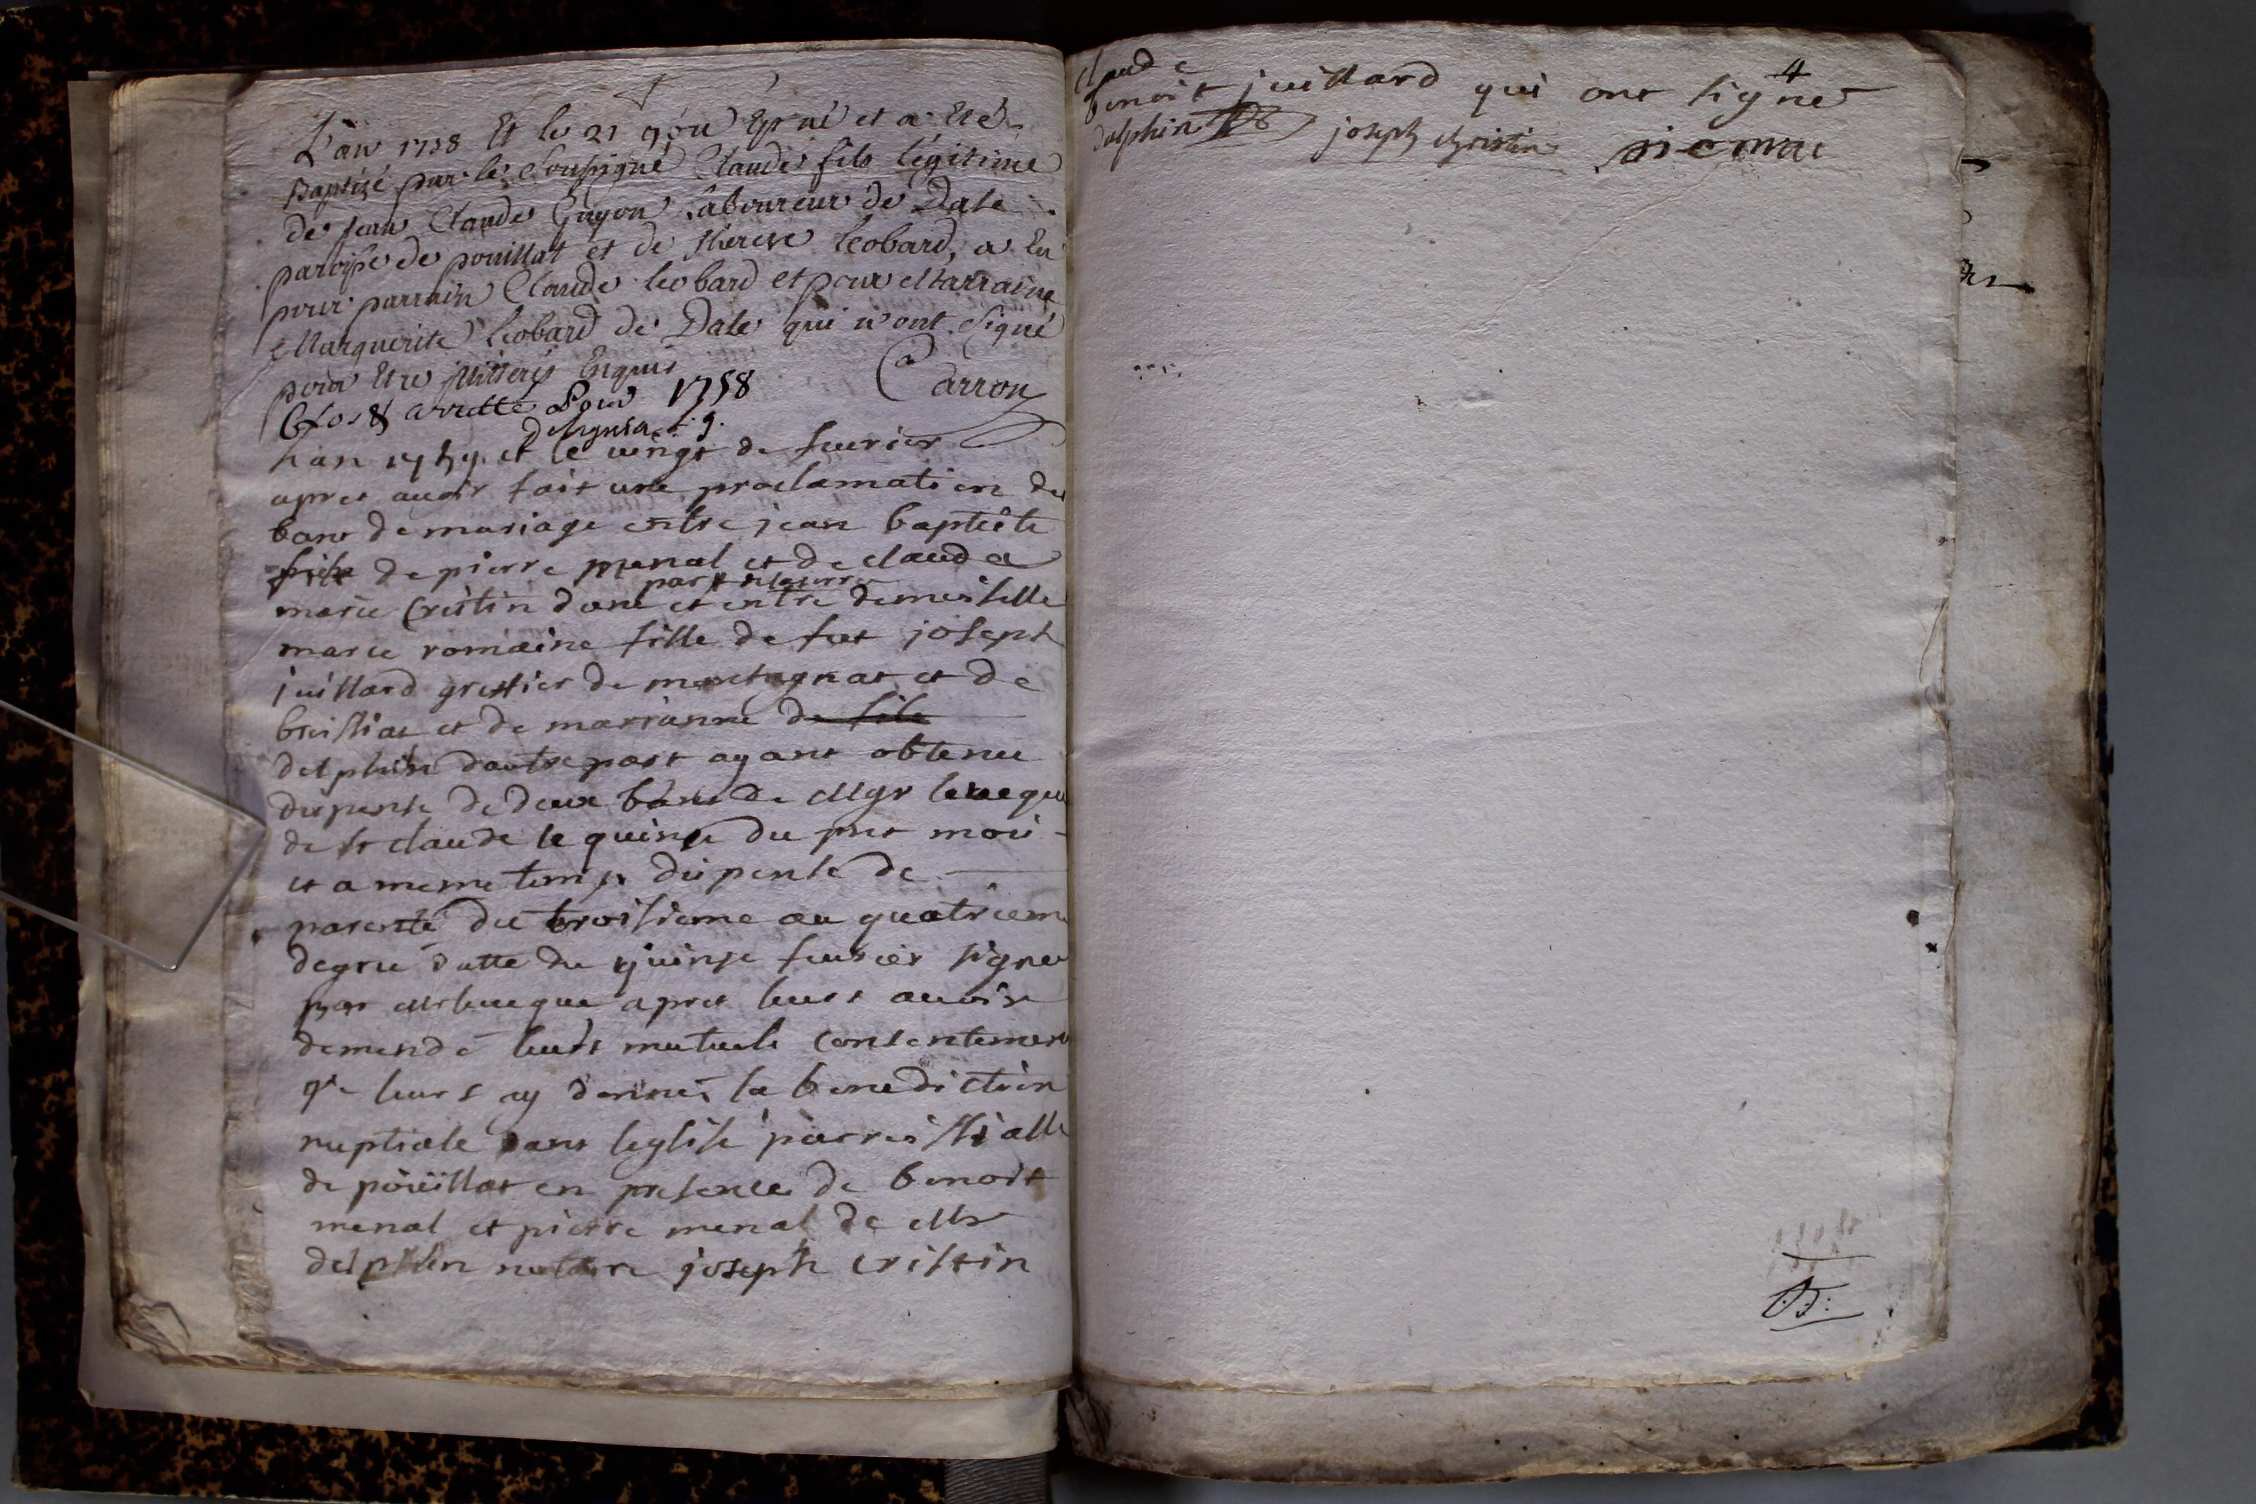 L'an 1758 Et le 21 9bre Est né et a Eté
Baptizé par le Soussigné Claude fils légitime
de Jean Claude Guyon Laboureur de Dale
paroisse de pouillat et de therese leobard, a Eu
pour parrain Claude leobard et pour Marraine
Marguerite leobard de Dale qui n'ont signé
pour Etre illiterés Enquis
Carron
Clos & arretté pour 1758
Deligna
L'an 1759 et le vingt de feurier
apres auoir fait une proclamation des
bans de mariage entre jean baptiste
fils de pierre menal et de clauda
marie Cristin dune part et entre demoiselle
marie romaine fille de feu joseph
juillard greffier de montagnat et de
et de marianne de fils
delphin dautre part ayant obtenu
dispense de deux bans de Mgr leueque
de st claude le quinse du pnt mois
et a meme temps dispense de
parenté du troisieme au quatrieme
degrué datte du quinse feurier signé
par Mr leueque apres leurs auoir
demendé leurs mutuels Consentement
je leurs ay donnes la benediction
nuptiale dans leglise parroissialle
de poüillat en presence de benoit
menal et pierre menal de Mr
delphin notaire joseph cristin
4
claude
benoit juillard qui ont signé
dalphin joseph christin